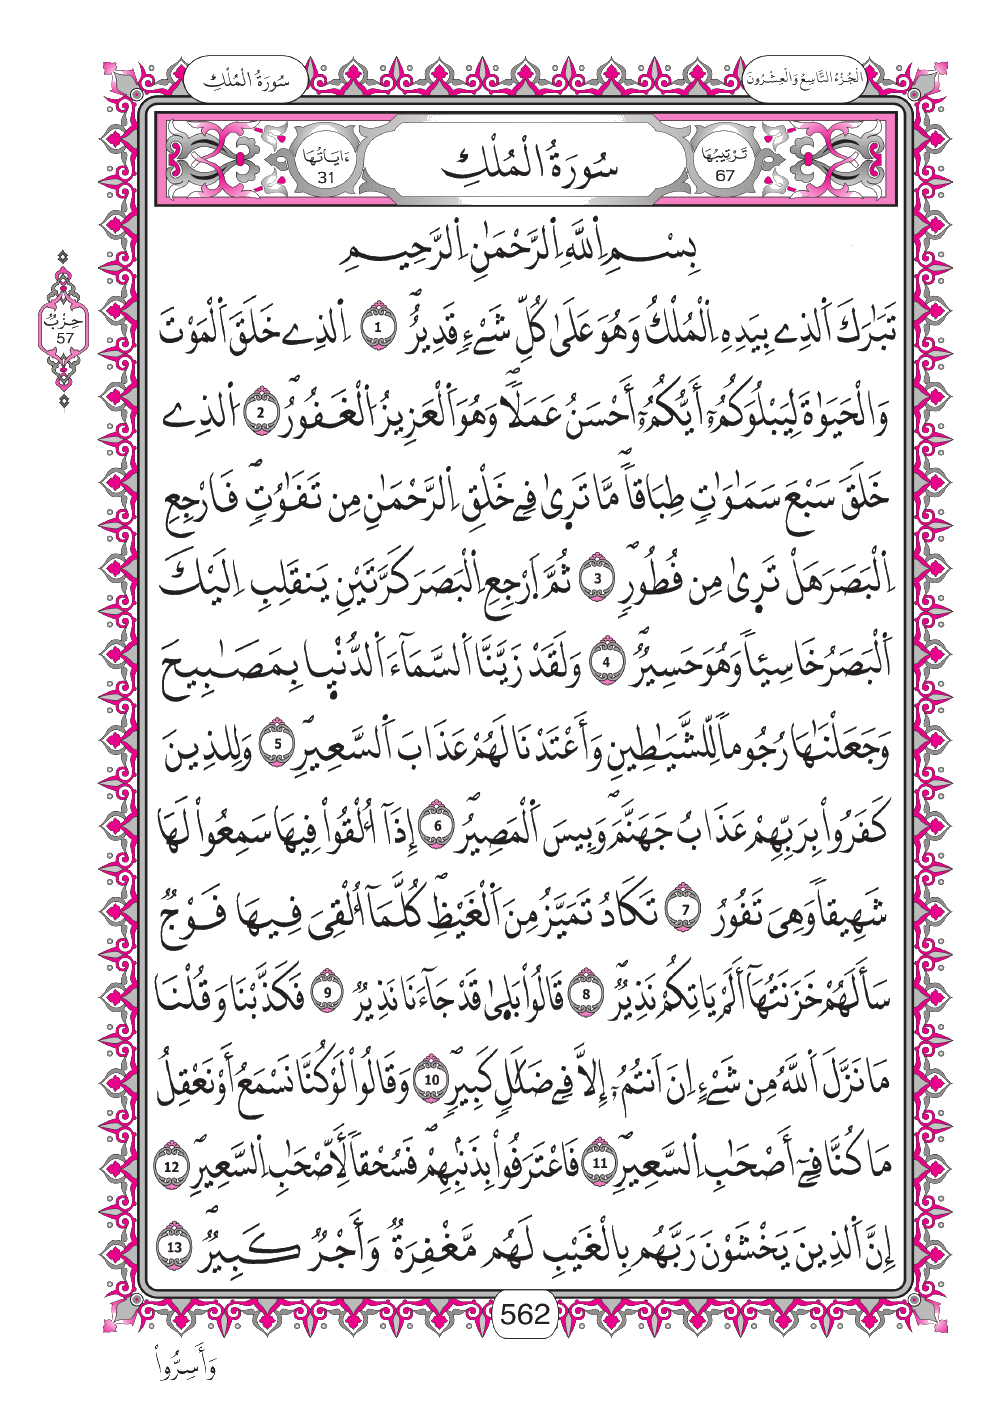 سُورَةُ الْمُلْكِ
الْجُزْءُ التَّاسِعُ وَالْعِشْرُونَ
تَرْتِيبُهَا
67
سُورَةُ الْمُلْكِ
ءَايَاتُهَا
31
بِسْمِ اِ۬للَّهِ اِ۬لرَّحْمَٰنِ اِ۬لرَّحِيمِ
حِزْبٌ
57
تَبَٰرَكَ اَ۬لذِے بِيَدِهِ اِ۬لْمُلْكُ وَهُوَ عَلَىٰ كُلِّ شَےْءٖ قَدِيرٌ 1 اِ۬لذِے خَلَقَ اَ۬لْمَوْتَ
وَالْحَيَوٰةَ لِيَبْلُوَكُمُۥٓ أَيُّكُمُۥٓ أَحْسَنُ عَمَلاٗ وَهُوَ اَ۬لْعَزِيزُ اُ۬لْغَفُورُ 2 اُ۬لذِے
خَلَقَ سَبْعَ سَمَٰوَٰتٖ طِبَاقاٗ مَّا تَر۪ىٰ فِے خَلْقِ اِ۬لرَّحْمَٰنِ مِن تَفَٰوُتٖ فَارْجِعِ
اِ۬لْبَصَرَ هَلْ تَر۪ىٰ مِن فُطُورٖ 3 ثُمَّ اَ۪رْجِعِ اِ۬لْبَصَرَ كَرَّتَيْنِ يَنقَلِبِ اِلَيْكَ
اَ۬لْبَصَرُ خَاسِئاٗ وَهُوَ حَسِيرٌ 4 وَلَقَدْ زَيَّنَّا اَ۬لسَّمَآءَ اَ۬لدُّنْي۪ا بِمَصَٰبِيحَ
وَجَعَلْنَٰهَا رُجُوماٗ لِّلشَّيَٰطِينِ وَأَعْتَدْنَا لَهُمْ عَذَابَ اَ۬لسَّعِيرِ 5 وَلِلذِينَ
كَفَرُواْ بِرَبِّهِمْ عَذَابُ جَهَنَّمَ وَبِيسَ اَ۬لْمَصِيرُ 6 إِذَآ أُلْقُواْ فِيهَا سَمِعُواْ لَهَا
شَهِيقاٗ وَهِيَ تَفُورُ 7 تَكَادُ تَمَيَّزُ مِنَ اَ۬لْغَيْظِ كُلَّمَآ أُلْقِيَ فِيهَا فَوْجٌ
سَأَلَهُمْ خَزَنَتُهَآ أَلَمْ يَاتِكُمْ نَذِيرٌ 8 قَالُواْ بَل۪ىٰ قَدْ جَآءَنَا نَذِيرٌ 9 فَكَذَّبْنَا وَقُلْنَا
مَا نَزَّلَ اَ۬للَّهُ مِن شَےْءٍ اِنَ اَنتُمُۥٓ إِلاَّ فِے ضَلَٰلٖ كَبِيرٖ 10 وَقَالُواْ لَوْ كُنَّا نَسْمَعُ أَوْ نَعْقِلُ
مَا كُنَّا فِےٓ أَصْحَٰبِ اِ۬لسَّعِيرِ 11 فَاعْتَرَفُواْ بِذَنۢبِهِمْ فَسُحْقاٗ لِّأَصْحَٰبِ اِ۬لسَّعِيرِ 12
إِنَّ اَ۬لذِينَ يَخْشَوْنَ رَبَّهُم بِالْغَيْبِ لَهُم مَّغْفِرَةٌ وَأَجْرٌ كَبِيرٌ 13
562
وَأَسِرُّواْ